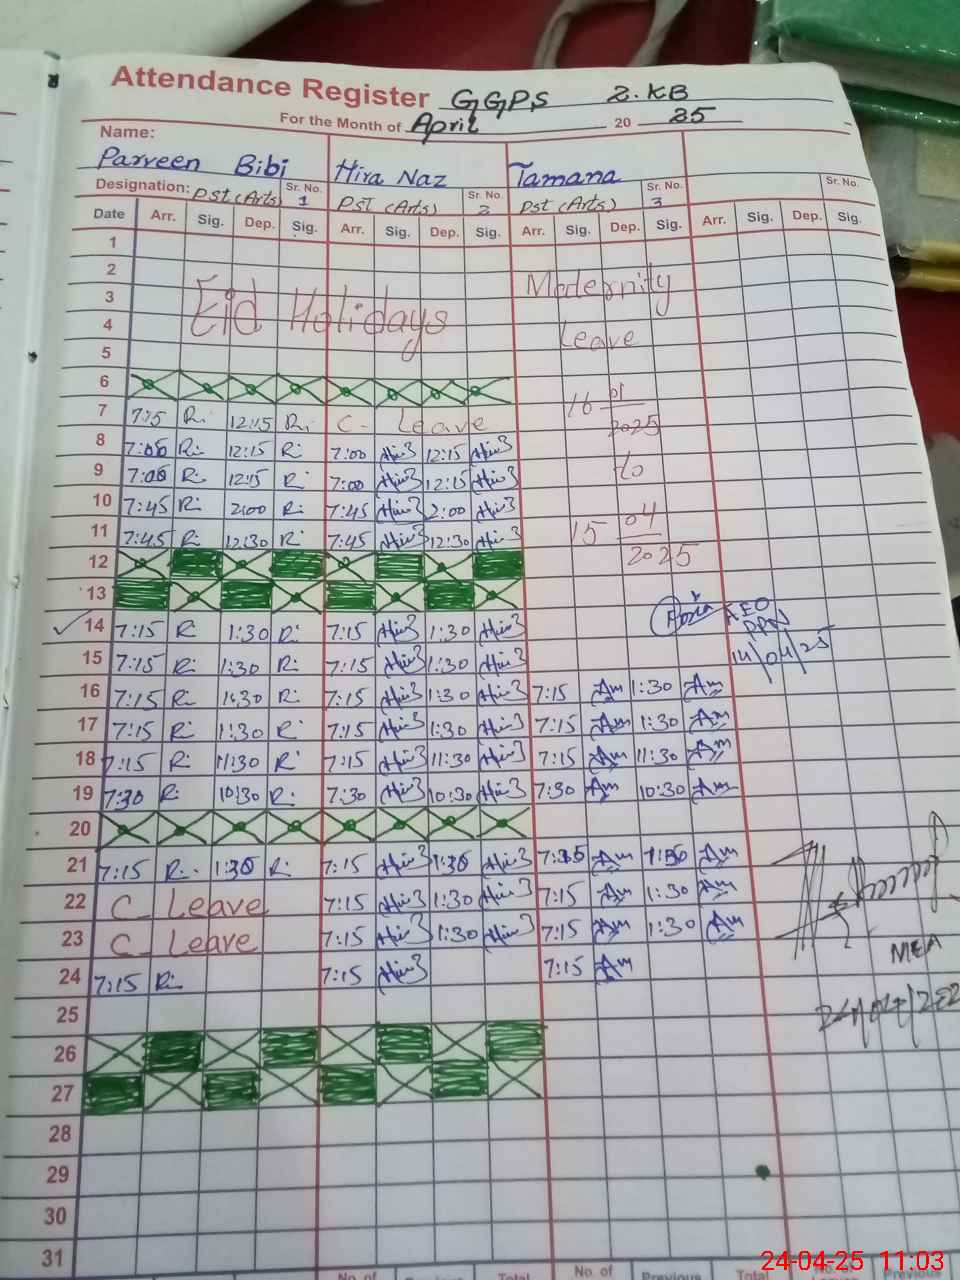 Attendance Register GGPS 2.KB
For the Month of April 20 25
Name:
Parveen Bibi Hira Naz Tamana
Designation: PST (Arts) Sr. No. 1 PST (Arts) Sr. No. 2 PST (Arts) Sr. No. 3 Sr. No.
Date Arr. Sig. Dep. Sig. Arr. Sig. Dep. Sig. Arr. Sig. Dep. Sig. Arr. Sig. Dep. Sig.
1
2 Modernity
3 Eid Holidays
4 Leave
5
6 16 01
7 7:15 R. 12:15 R. C. Leave 2025
8 7:00 R. 12:15 R. 7:00 12:15
9 7:00 R. 12:15 R. 7:00 12:15 to
10 7:45 R. 2:00 R. 7:45 2:00
11 7:45 R. 12:30 R. 7:45 12:30 15 04
12 2025
13
14 7:15 R. 1:30 R. 7:15 1:30 AEO
14/04/25
15 7:15 R. 1:30 R. 7:15 1:30
16 7:15 R. 1:30 R. 7:15 1:30 7:15 Am 1:30 Am
17 7:15 R. 1:30 R. 7:15 1:30 7:15 Am 1:30 Am
18 7:15 R. 11:30 R. 7:15 11:30 7:15 Am 11:30 Am
19 7:30 R. 10:30 R. 7:30 10:30 7:30 Am 10:30 Am
20
21 7:15 R. 1:30 R. 7:15 1:30 Am Am
22 C. Leave 7:15 1:30 7:15 Am 1:30 Am
23 C. Leave 7:15 1:30 7:15 Am 1:30 Am
MEA
24 7:15 R. 7:15 7:15 Am
25
26
27
28
29
30
31
No. of Total No. of Previous Total No. of Previous
24-04-25 11:03